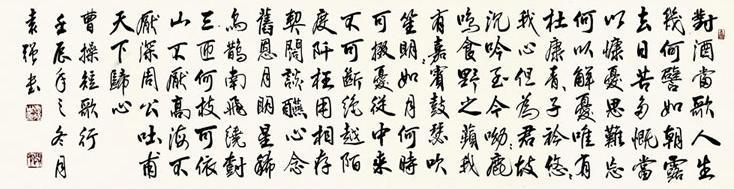 對酒當歌人生
幾何譬如朝露
去日苦多慨當
以慷憂思難忘
何以解憂唯有
杜康青〻子衿悠〻
我心但為君故
沉吟至今呦〻鹿
鳴食野之蘋我
有嘉賓鼓瑟吹
笙明〻如月何時
可掇憂從中来
不可斷絶越陌
度阡枉用相存
契闊談讌心念
舊恩月明星稀
烏鵲南飛繞樹
三匝何枝可依
山不厭高海不
厭深周公吐甫
天下歸心
曹操短歌行
壬辰年之冬月
袁强书